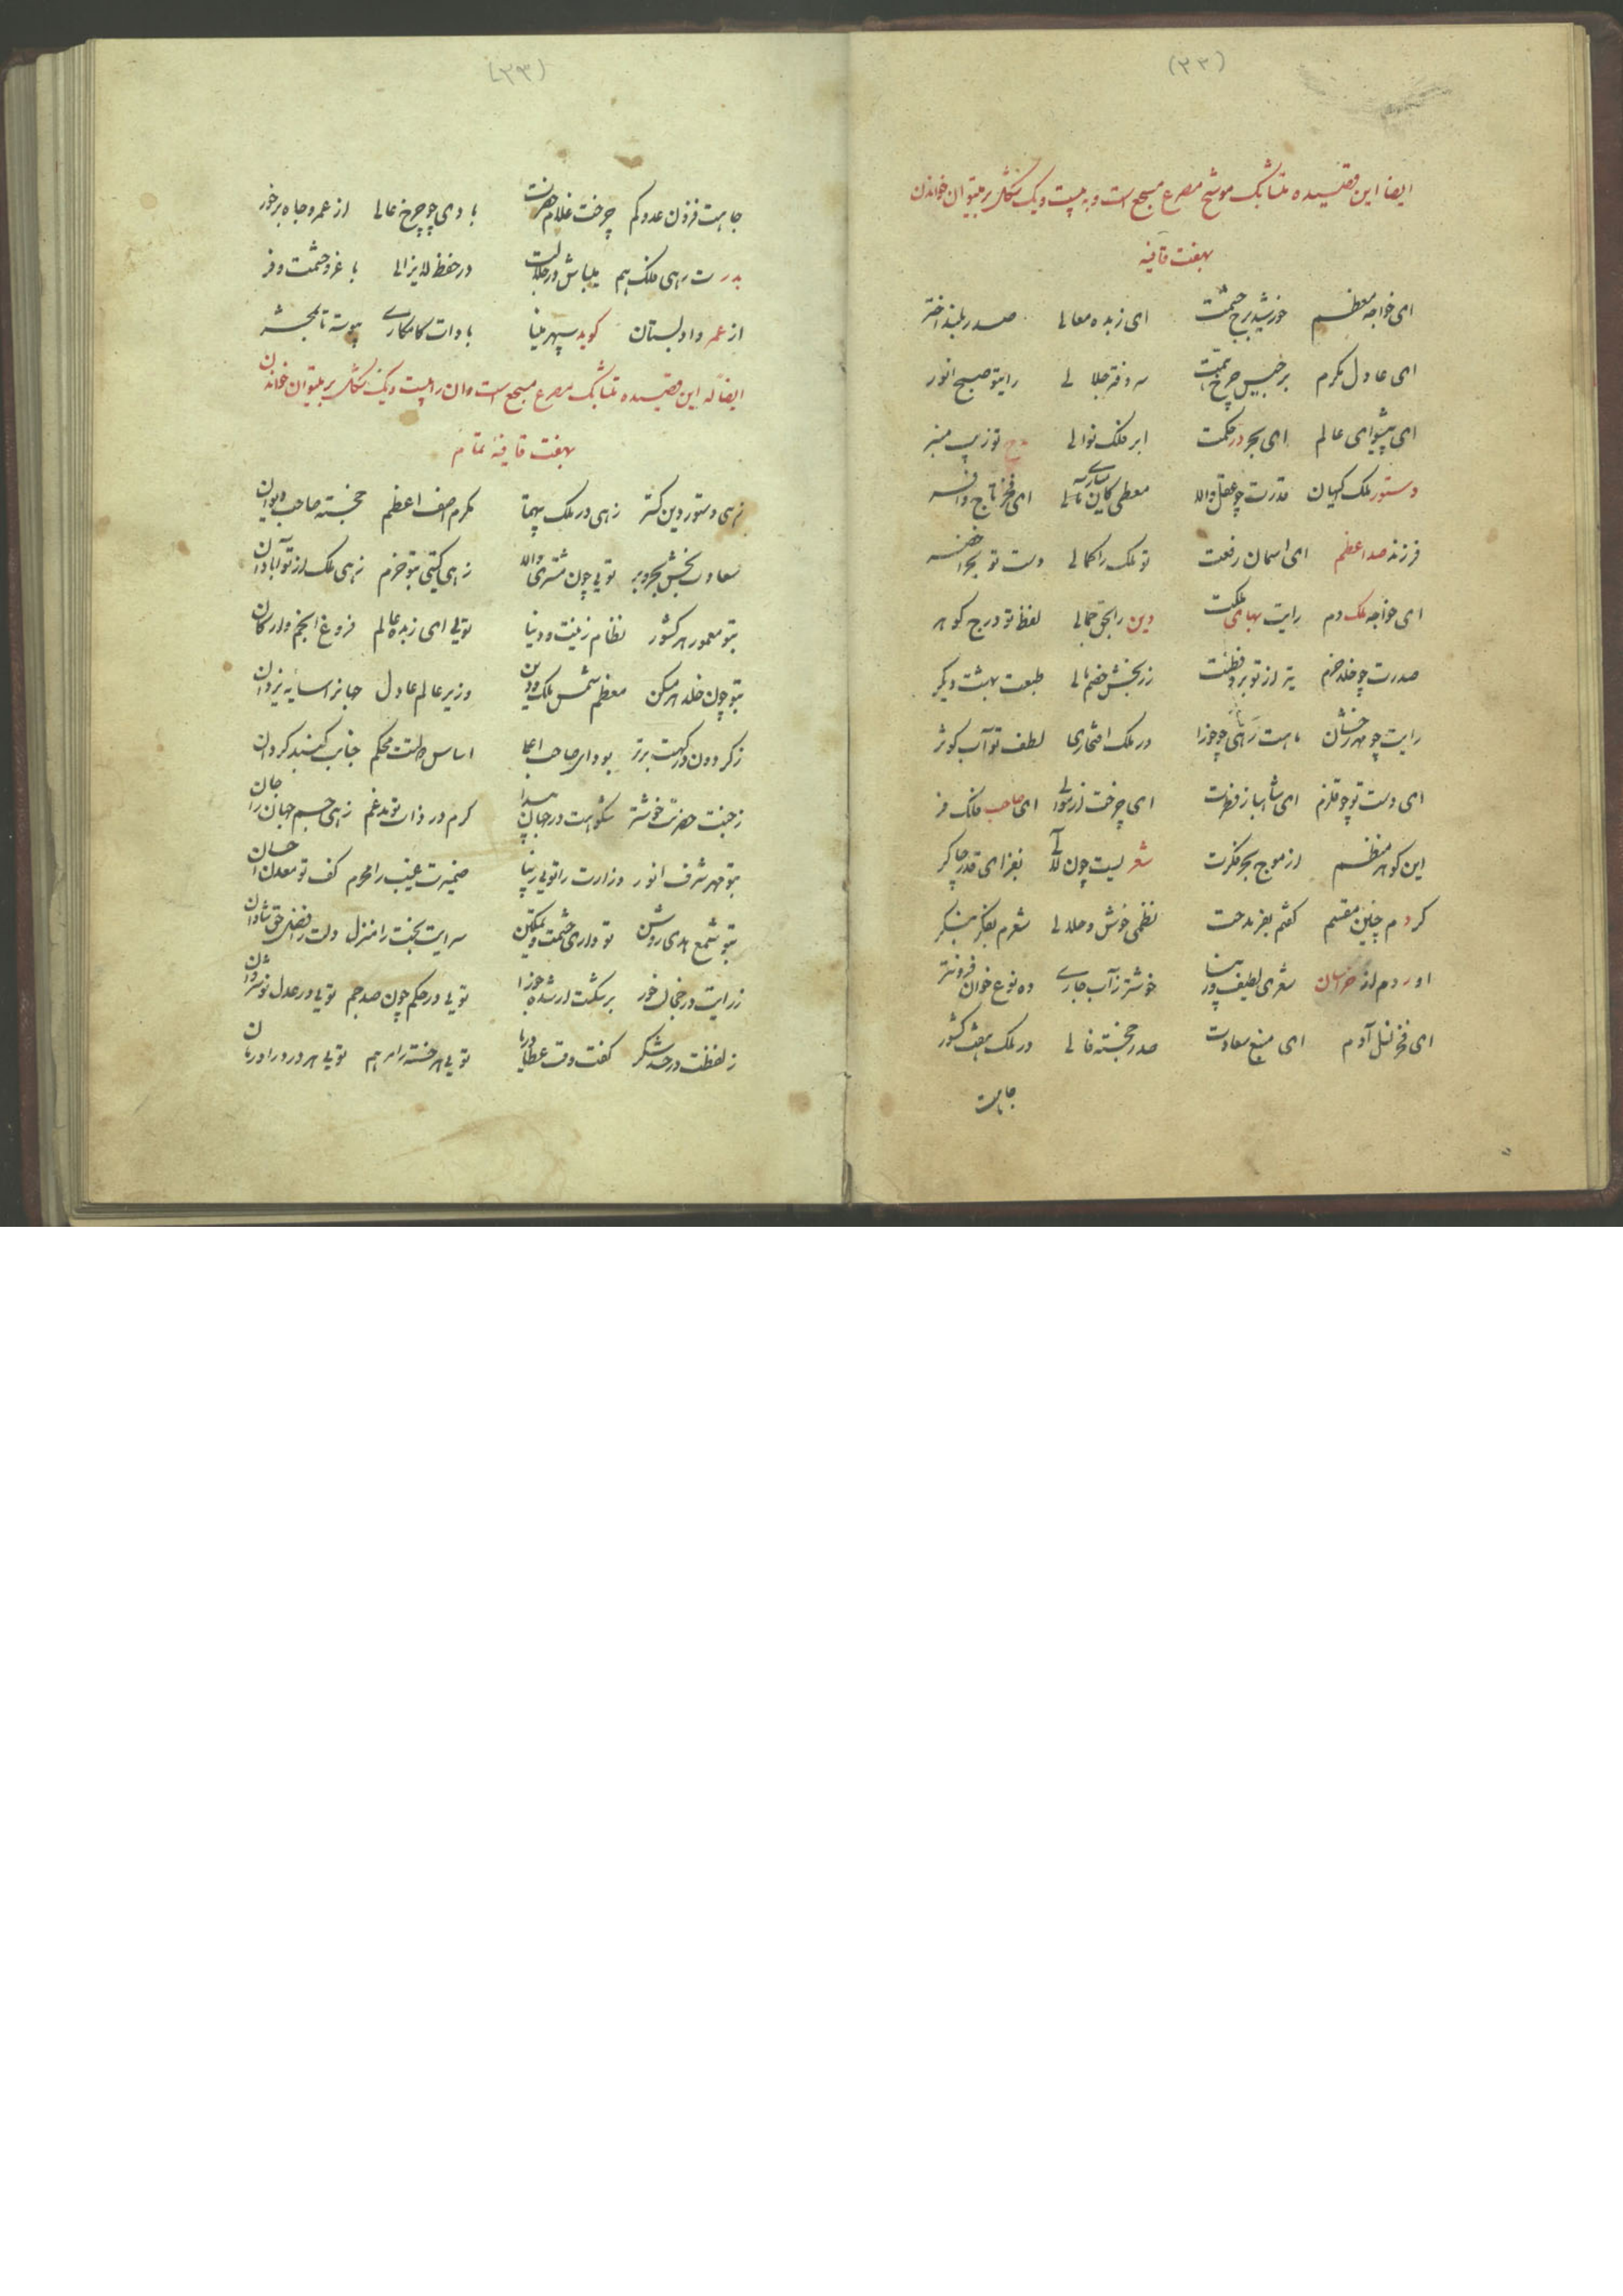 (۳۳)
ایضا این قصیده متشابک موشح مصرع مسجع است و به بیست و یک شکل بر میتوان خواندن
بهفت قافیه
ای خواجه معظم خورشید برج حشمت ای زبده معالی صدر بلند اختر
ای عادل مکرم برجیس چرخ همت سر دفتر جلالی رایتو صبح انور
ای پیشوای عالم ای بحر در حکمت ابر فلک نوالی توزیب منبر
دستور ملک کیهان قدرت چو عقل والا معطی کان یساری ای فخر تاج و افسر
فرزند صد اعظم ای آسمان رفعت تو ملک را کمالی دست تو بحر اخضر
ای خواجه ملک دم رایت بهای ملکت دین را بحق جمالی لفظ تو درج گوهر
صدرت چو خلد خرم تیر از تو برد فطنت زر بخش خصم مالی طبعت بهشت دیگر
رایت چو مهر رخشان ماهت رهی چو جوزا در ملک افتخاری لطف تو آب کوثر
ای دست تو چو قلزم ای شاهباز فطرت ای چرخت از موالی ای صاحب ملک فر
این گوهر منظم از موج بحر فکرت شعریست چون لآلی بفزای قدر چاکر
کردم چنین مقسم گفتم بفر مدحت نظمی خوش و حلالی شعرم بفکر بنگر
اوردم از خراسان شعری لطیف و زیبا خوشتر ز آب جاری ده نوع خوان فزونتر
ای فخر نسل آدم ای منبع سعادت صدر خجسته فالی در ملک هفت کشور
جاهت
(۳۳)
جاهت فزون عدو کم چرخت غلام حضرت بادی چو چرخ عالی از عمر و جاه برخور
بدرت رهی فلک هم میباش در جلالت در حفظ لایزالی با عز و حشمت و فر
از عمر داد بستان گوید سپهر مینا بادات کامکاری پیوسته تا بمحشر
ایضا له این قصیده متشابک مصرع مسجع است و ان را بیست و یک شکل بر میتوان خواندن
بهفت قافیه تمام
زهی دستور دین گستر زهی در ملک بیهمتا مکرم اصف اعظم خجسته صاحب دیوان
سعادت بخش بحر و بر تویی چون مشتری والا زهی گیتی بتو خرم زهی ملک از تو آبادان
بتو معمور هر کشور نظام زینت و دنیا تویی ای زبده عالم فروغ انجم و ارکان
بتو چون خلد هر مسکن معظم شمس ملک و دین وزیر عالم عادل جهانرا سایه یزدان
ز گردون درگهت برتر بود ای صاحب اعلا اساس دولتت محکم جنابت گنبد گردان
ز جنت حضرتت خوشتر شکوهت در جهان پیدا کرم در ذات تو مدغم زهی جسم جهان را جان
بتو مهر شرف انور وزارت را تویی زیبا ضمیرت غیب را محرم کف تو معدن احسان
بتو شمع هدی روشن تو داری حشمت و تمکین سرایت بخت را منزل دلت از فضل حق شادان
ز رایت در خجل خور بر شکت ار شده جوزا تویی در حکم چون صد جم تویی در عدل نوشروان
ز لفظت در حسد شکر کفت وقت عطا دریا تویی هر خسته را مرهم تویی هر درد را درمان